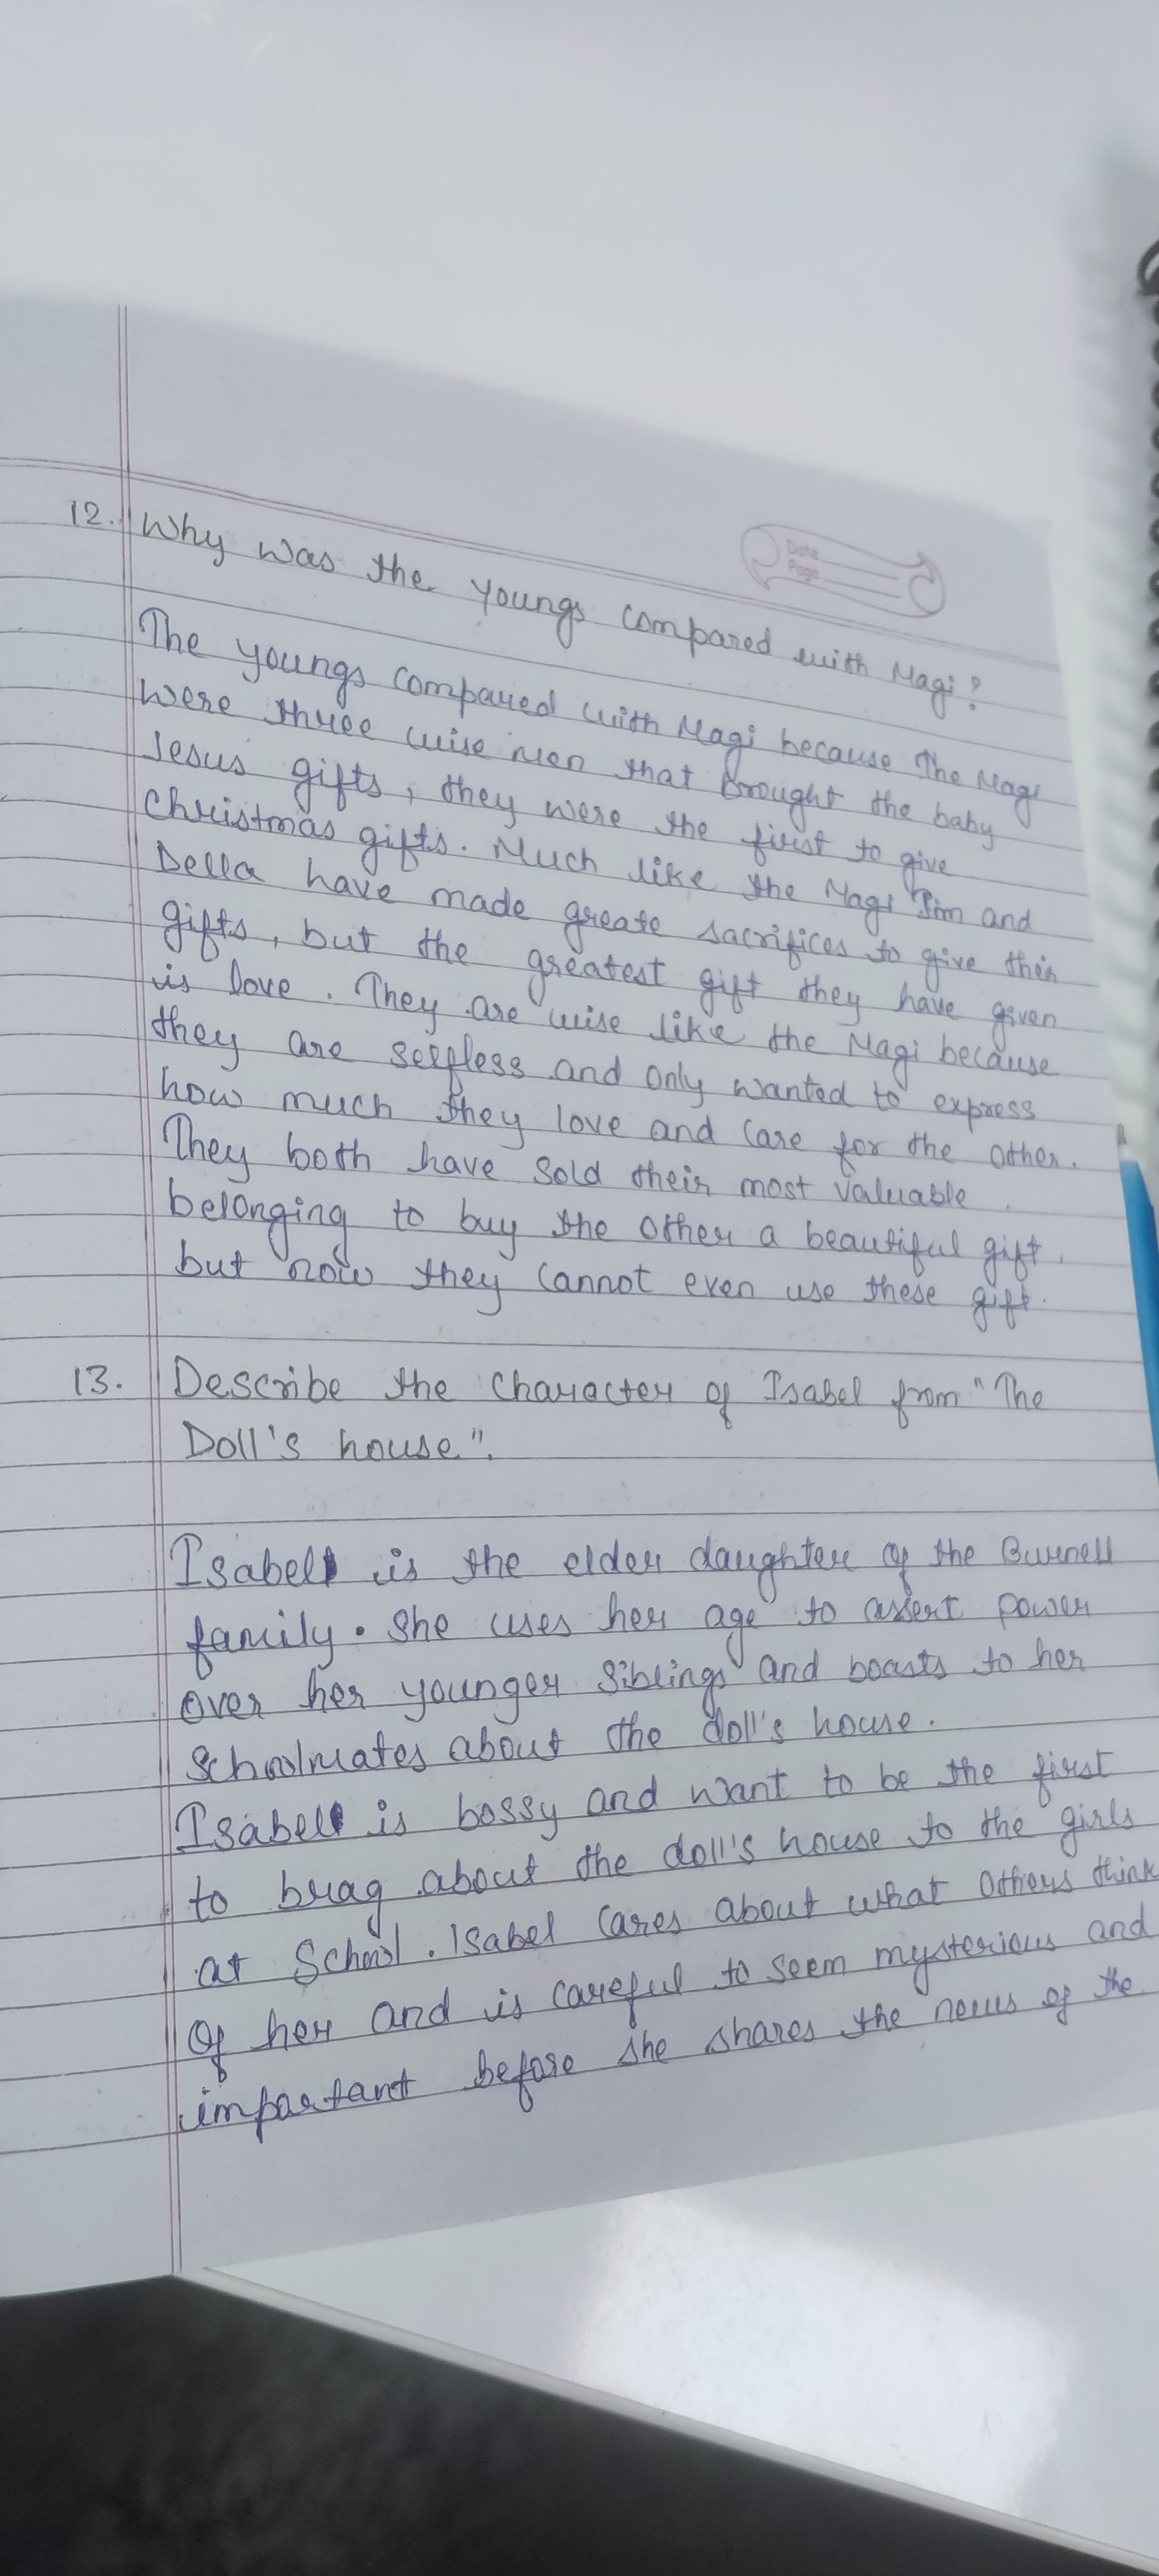 Date
Page
12. Why was the youngs compared with Magi?
The youngs compared with Magi because The Magi
were three wise men that brought the baby
Jesus gifts, they were the first to give
Christmas gifts. Much like the Magi Jim and
Della have made greate sacrifices to give their
gifts, but the greatest gift they have given
is love. They are wise like the Magi because
they are selfless and only wanted to express
how much they love and care for the other.
They both have sold their most valuable
belonging to buy the other a beautiful gift,
but now they cannot even use these gift.
13. Describe the character of Isabel from "The
Doll's house".
Isabel is the elder daughter of the Burnell
family. She uses her age to assert power
over her younger siblings and boasts to her
schoolmates about the doll's house.
Isabel is bossy and want to be the first
to brag about the doll's house to the girls
at School. Isabel cares about what others think
of her and is careful to seem mysterious and
important before she shares the news of the